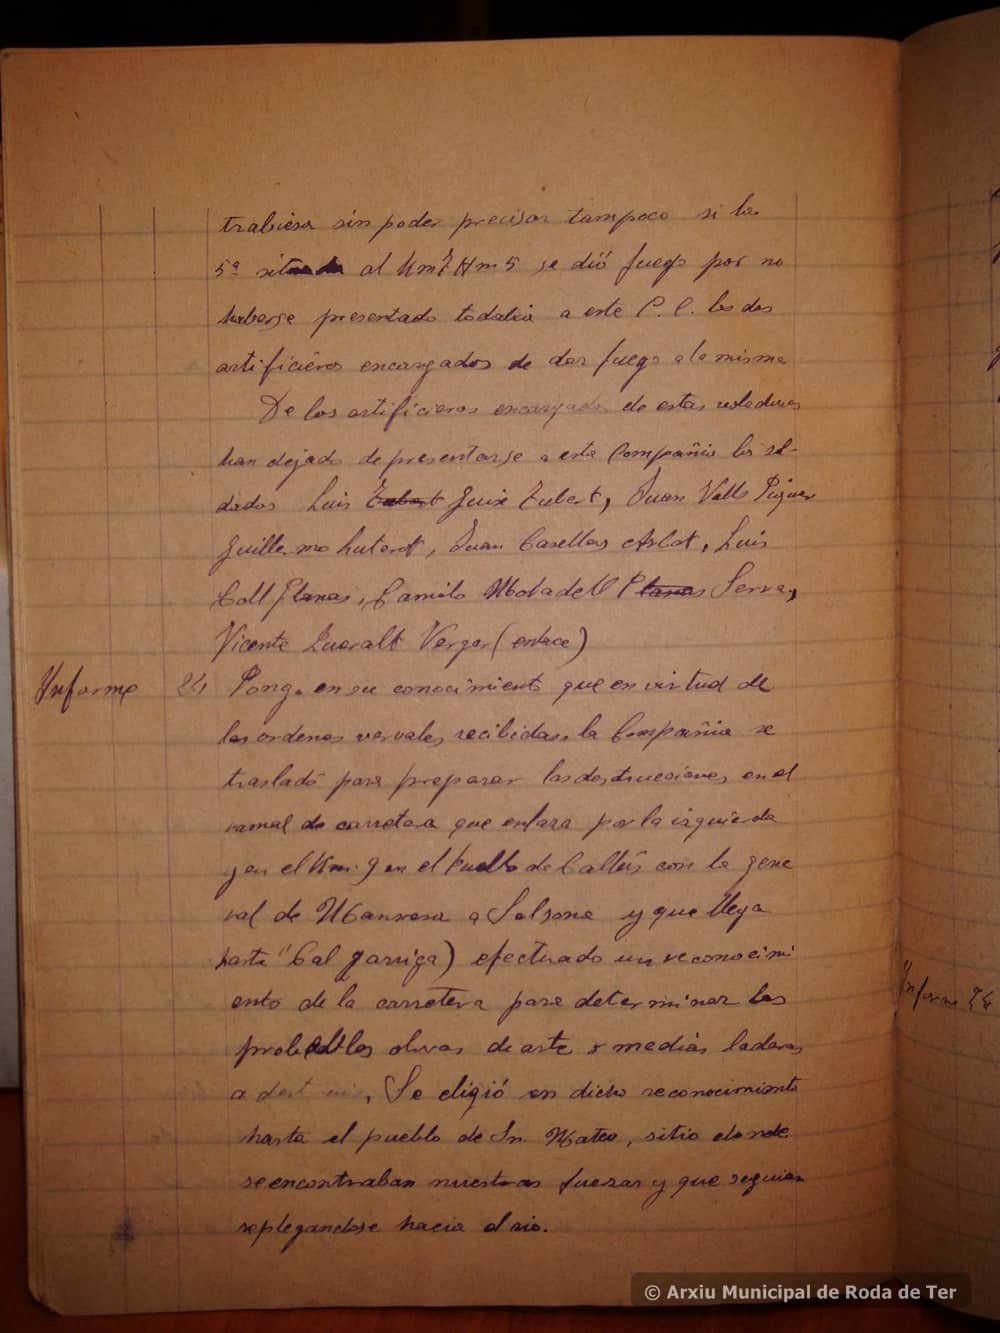 trabiesa sin poder precisar tampoco si la
5ª situada al Km 7 Hm 5 se dió fuego por no
haberse presentado todabia a este P. C. los dos
artificieros encargados de dar fuego a la misma
De los artificieros encargados de estas voladuras
han dejado de presentarse a esta Compañia los sol-
dados Luis Zubert Guix Zubert, Juan Valls Piguer
Guillermo, Juan Casellas Arbat, Luis
Coll Planas, Camilo Mobadell Planas Serra,
Vicente Queralt Verger (enlace)
Informe 24 Pongo en su conocimiento que en virtud de
las ordenes vervales recibidas, la Compañia se
trasladó para preparar las destrucciones en el
ramal de carretera que enlaza por la izquierda
y en el Km. 9 en el Pueblo de Callús con la gene
ral de Manresa a Solsona y que llega
hasta "Cal Garriga) efectuado un reconocimi
ento de la carretera para determinar las
probables obras de arte y medias laderas
a destruir, Se eligió en dicho reconocimiento
hasta el pueblo de Sn. Mateo, sitio donde
se encontraban nuestras fuerzas y que seguian
replegandose hacia el rio.
Informe 24
© Arxiu Municipal de Roda de Ter